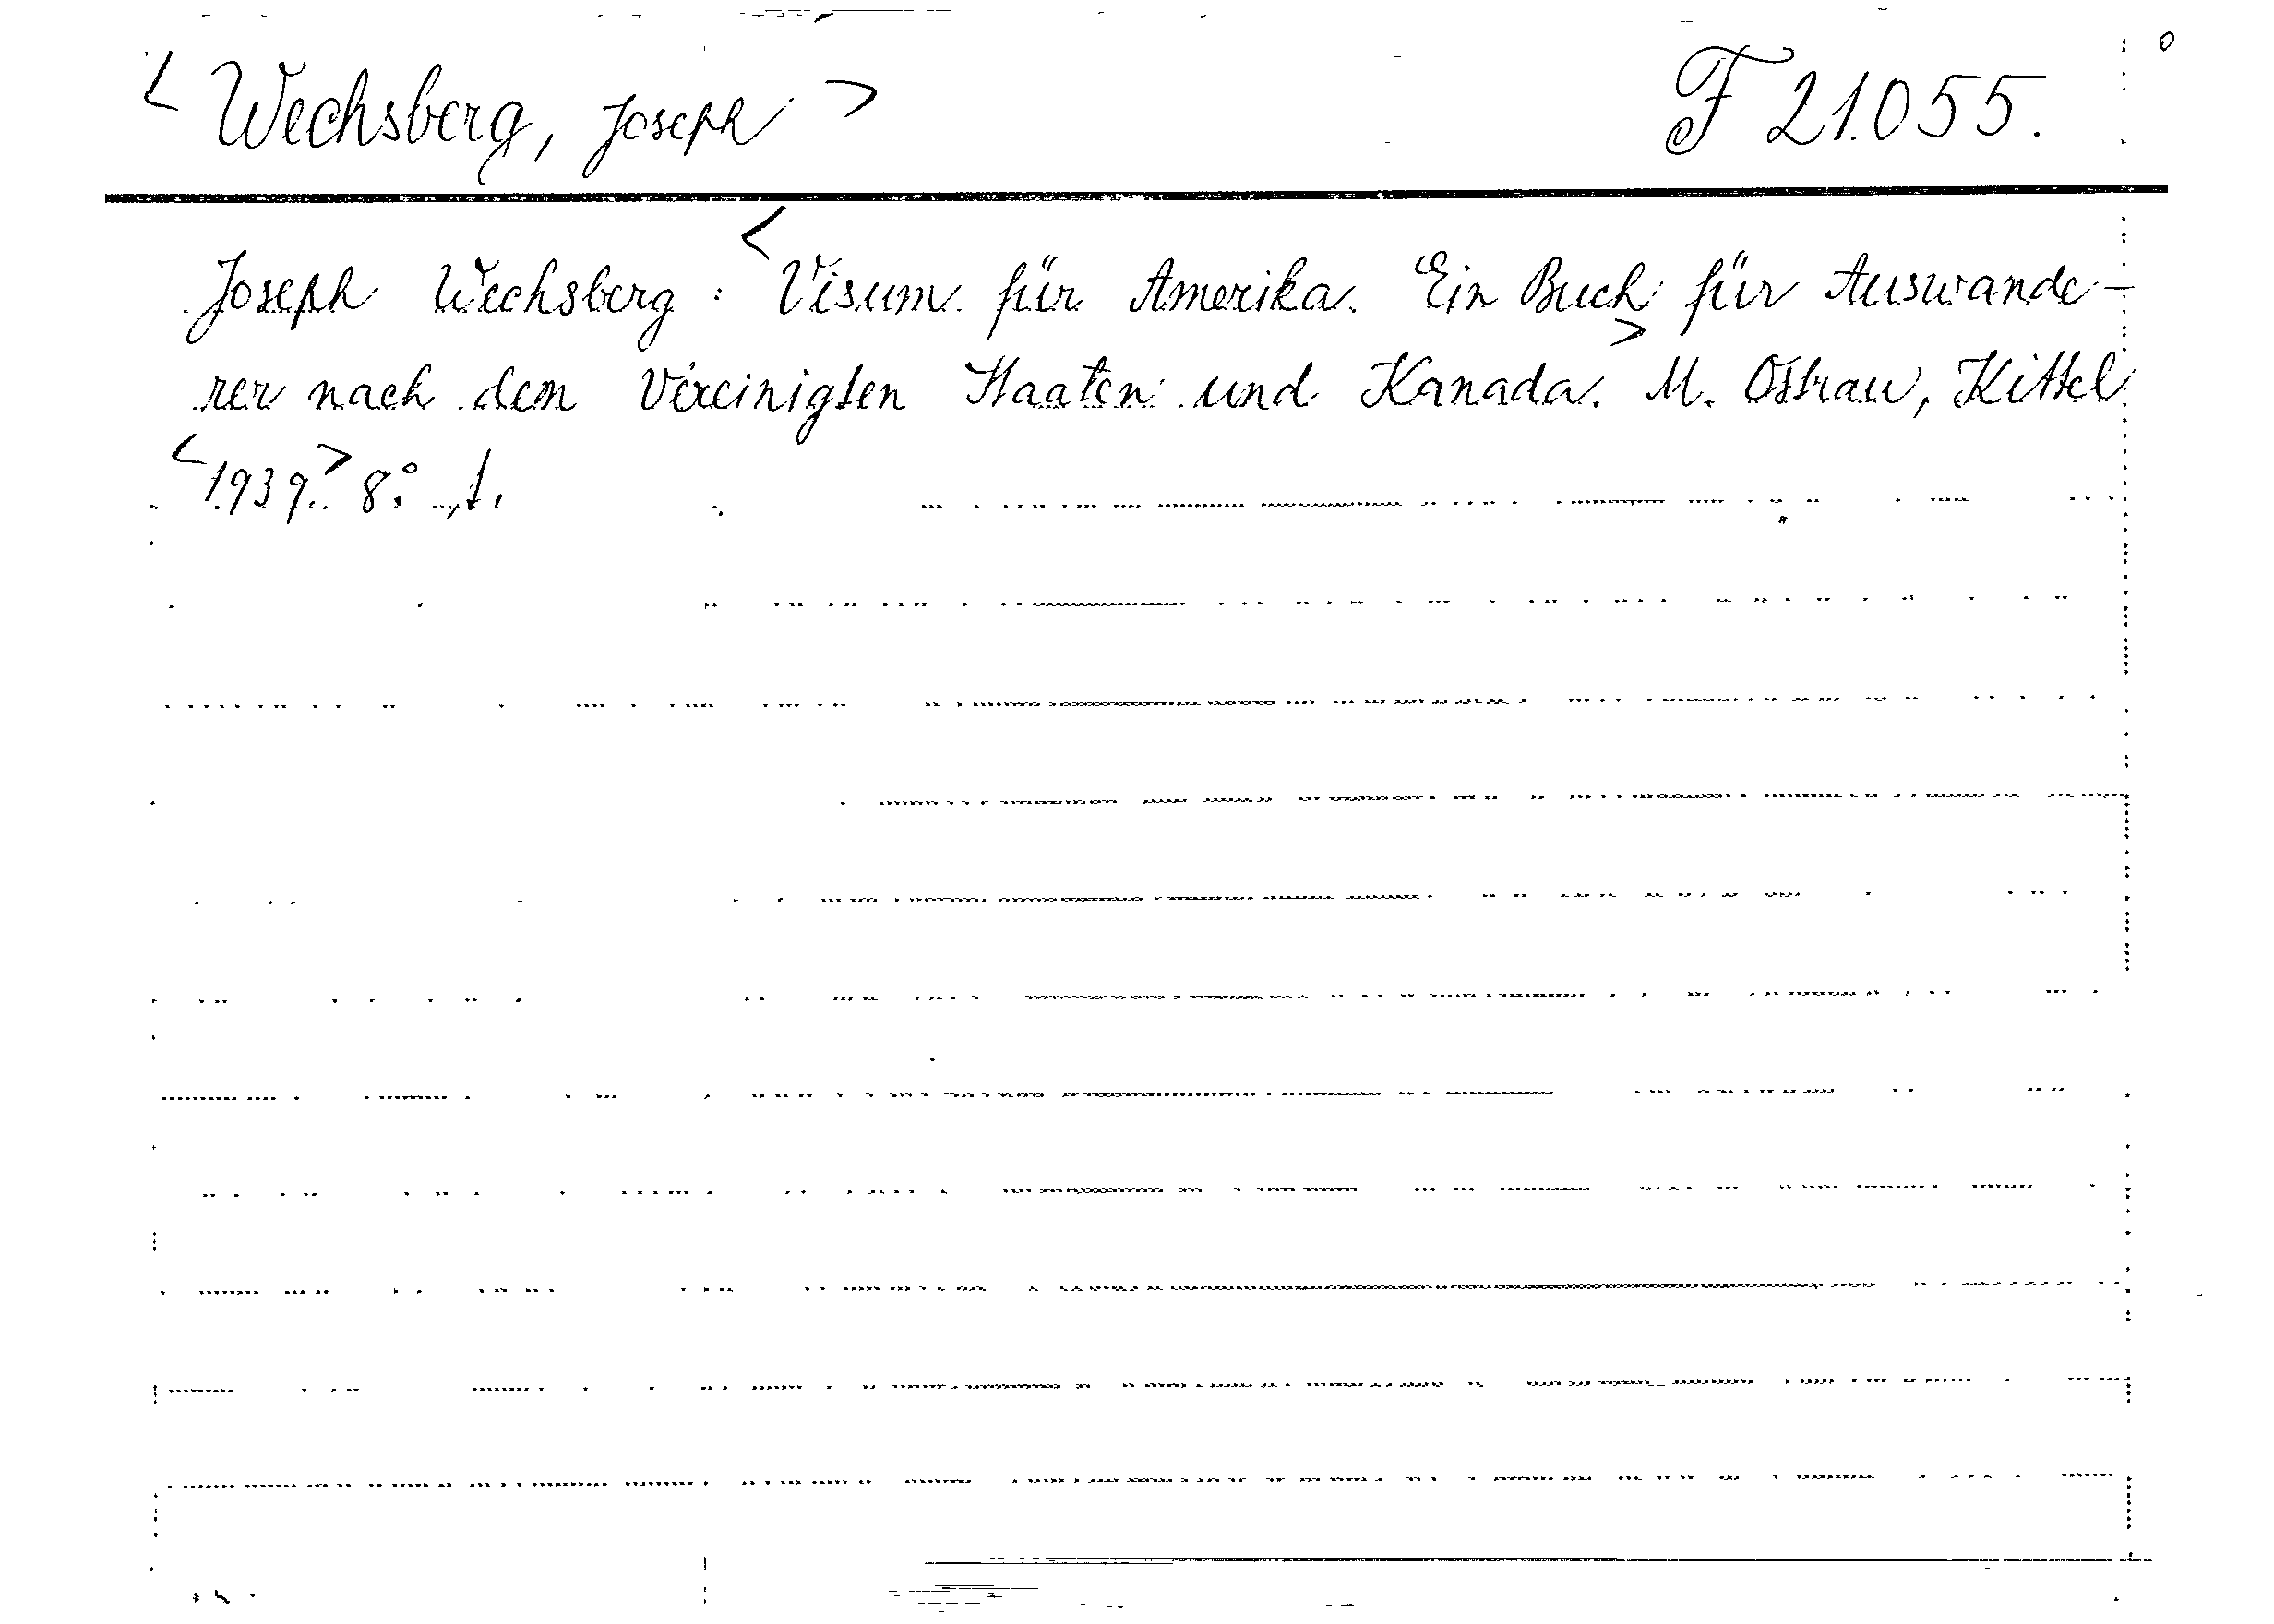 <Wechsberg, Joseph> F 21.055.
Joseph Wechsberg: <Visum für Amerika. Ein Buch für Auswande-
rer nach den Vereinigten Staaten und Kanada.> M. Ostrau, Kittel
<1939.> 8°.